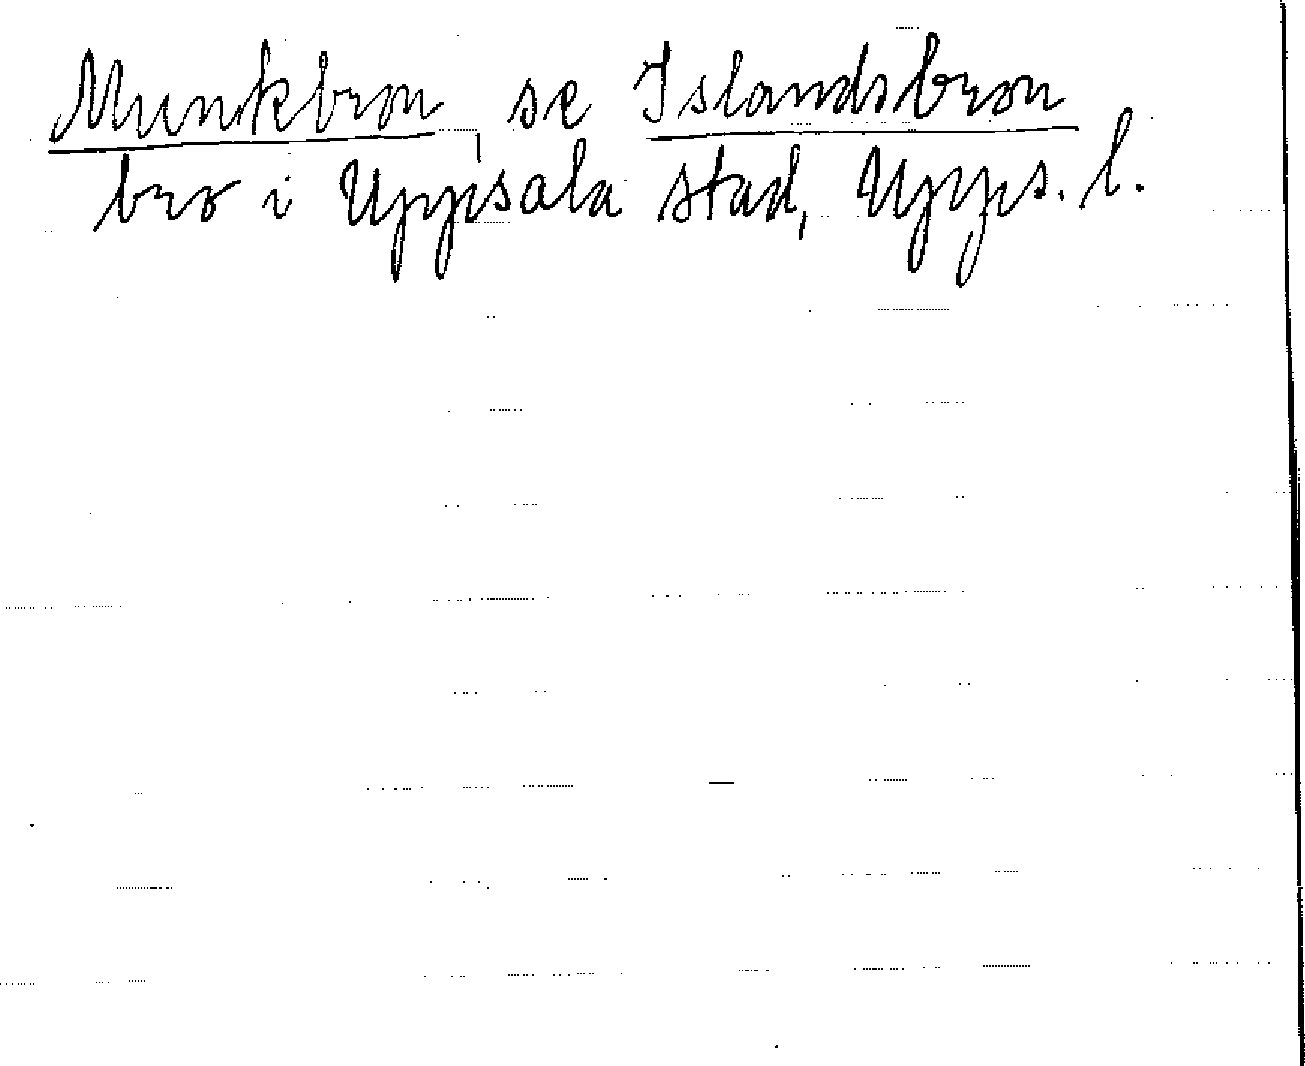 Munkbron, se Islandsbron
bro i Uppsala stad, Upps. l.